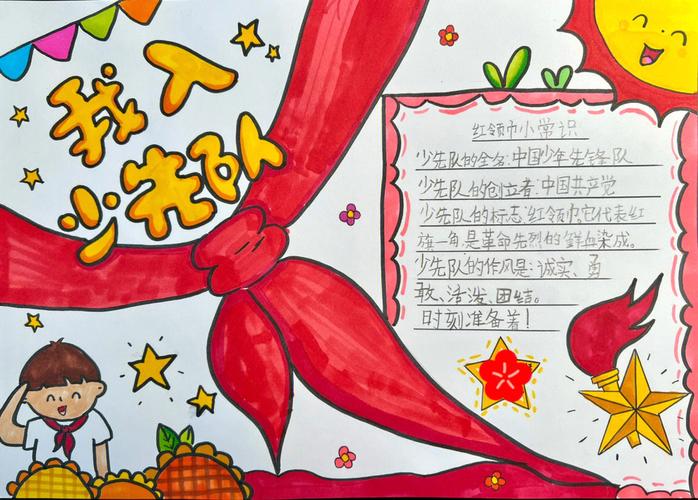 我入
少先队
红领巾小常识
少先队的全名:中国少年先锋队
少先队的创立者:中国共产党
少先队的标志:红领巾。它代表红
旗一角,是革命先烈的鲜血染成。
少先队的作风是:诚实、勇
敢、活泼、团结。
时刻准备着!